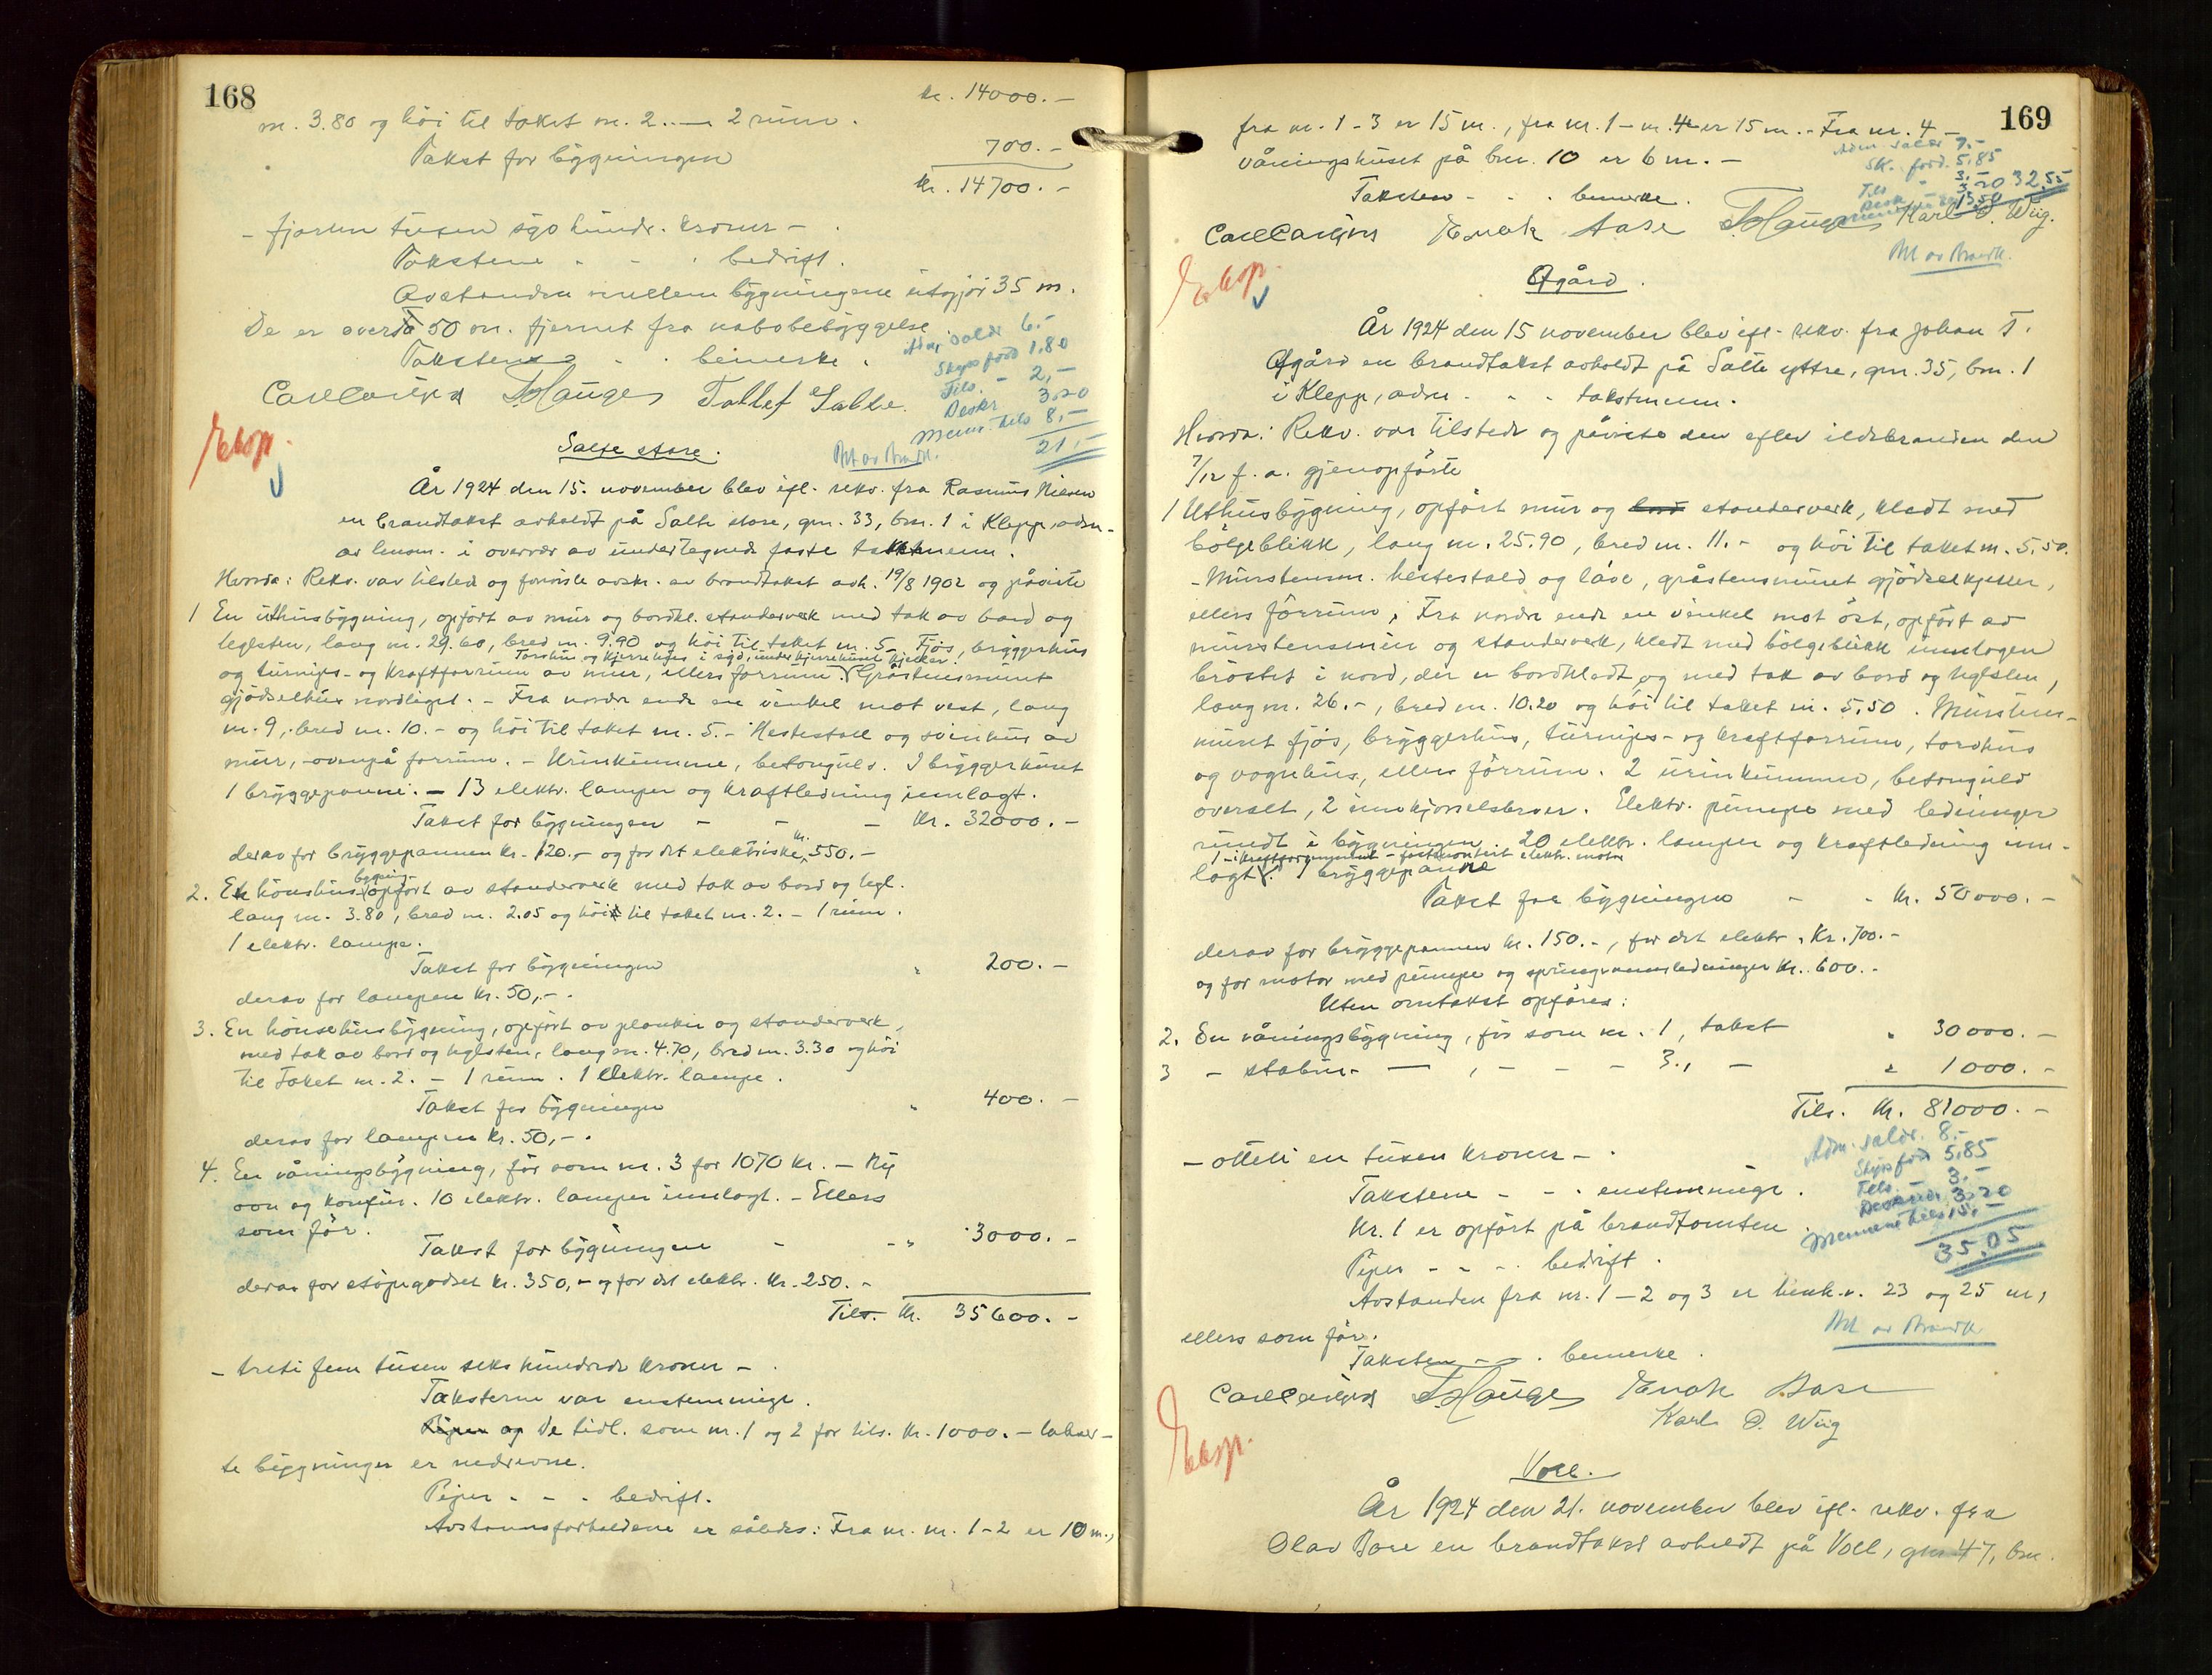 168
kr. 14000.-
m. 3.80 og höi til taket m. 2.- 2 rum.
Takst for bygningen 700.-
kr. 14700.-
- fjorten tusen syv hundr. kroner -.
Takstene - - . bedrift.
Avstanden mellem bygningene utgjör 35 m.
De er over 50 m. fjernet fra nabobebyggelse.
Taksten - . bemerke.
Adm. sald. 6.-
Skyssford. 1,80
Tils. - 2,-
Deskr. 3.20
Menns. tils 8,-
21.-
Hauge Tollef Salte.
Eksp.
Salte store.
År 1924 den 15. november blev efl. rekv. fra Rasmus Nilsen
en brandtakst avholdt på Salte store, gnr. 33, bnr. 1 i Klepp, adm.
av lensm. i overvær av undertegnede faste takstmenn.
Hvorda: Rekv. var tilstede og foreviste avskr. av brandtakst avh. 19/8 1902 og påviste
1 En uthusbygning, opfört av mur og bordkl. standerverk med tak av bord og
teglsten, lang m. 29.60, bred m. 9.90 og höi til taket m. 5.- Fjös, bryggerhus
Torvhus og kjerrehus i syd, under kjerrehuset kjeller.
og turnips- og kraftforrum av mur, ellers forrum. Gråstensmuret
gjödselhus nordligst. - Fra nordre ende en vinkel mot vest, lang
m. 9, bred m. 10.- og höi til taket m. 5.- Hestestall og svinhus av
mur, ovenpå forrum. - Urinkumme, betongulv. I bryggerhuset
1 bryggepanne. - 13 elektr. lamper og kraftledning innlagt.
Takst for bygningen - - - Kr. 32000.-
derav for bryggepannen kr. 120.- og for det elektriske kr. 550.-
2. En hönshusbygning opfört av standerverk med tak av bord og tegl.
lang m. 3.80, bred m. 2.05 og höi til taket m. 2.- 1 rum.
1 elektr. lampe.
Takst for bygningen " 200.-
derav for lampen kr. 50,-.
3. En hönsehusbygning, opfört av planker og standerverk,
med tak av bord og teglsten, lang m. 4.70, bred m. 3.30 og höi
til taket m. 2.- 1 rum. 1 elektr. lampe.
Takst for bygningen " 400.-
derav for lampen kr. 50,-.
4. En våningsbygning, för som nr. 3 for 1070 kr. - Ny
ovn og komfur. 10 elektr. lamper innlagt. - Ellers
som för.
Takst for bygningen - - " 3000.-
derav for stöpegodset kr. 350,- og for det elektr. kr. 250.-
Tils. kr. 35600.-
- treti fem tusen seks hundrede kroner -.
Taksterne var enstemmige.
De tidl. som nr. 1 og 2 for tils. kr. 1000.- takser-
te bygninger er nedrevne.
Piper - - . bedrift.
Avstandsforholdene er således: Fra nr. 1-2 er 10 m.,
169
fra nr. 1-3 er 15 m., fra nr. 1 - nr. 4 er 15 m. - Fra nr. 4 -
våningshuset på bnr. 10 er 6 m. -
Taksten - - . bemerke.
Adm. sald. 7.-
Sk. ford. 5.85
Tils - 3.-
3.20
13.50
32.55
Enok Aase Hauge Karl O. Wiig.
Eksp.
Øgård.
År 1924 den 15 november blev efl. rekv. fra Johan T.
Øgård en brandtakst avholdt på Salte yttre, gnr. 35, bnr. 1
i Klepp, adm. - - . takstmenn.
Hvorda: Rekv. var tilstede og påviste den efter ildebranden den
7/12 f. a. gjenopförte
1 Uthusbygning, opfört mur og standerverk, kledt med
bölgeblikk, lang m. 25.90, bred m. 11.- og höi til taket m. 5.50.
- Murstensm. hestestald og låve, gråstensmuret gjödselkjeller,
ellers förrum. Fra nordre ende en vinkel mot öst, opfört av
murstensmur og standerverk, kledt med bölgeblikk unntagen
bröstet i nord, der er bordkledt, og med tak av bord og teglsten,
lang m. 26.-, bred m. 10.20 og höi til taket m. 5.50. Murstens-
muret fjös, bryggerhus, turnips- og kraftforrum, torvhus
og vognhus, ellers förrum. 2 urinkummer, betongulv
overalt, 2 innkjörselsbroer. Elektr. pumpe med ledninger
rundt i bygningen. 20 elektr. lamper og kraftledning inn-
1 i kraftforrummet - fastmontert elektr. motor
lagt. 1 bryggepanne
Takst for bygningen - - kr. 50000.-
derav for bryggepannen kr. 150.-, for det elektr. kr. 700.-
og for motor med pumpe og springvannsledninger kr. 600.-
Uten omtakst opföres:
2. En våningsbygning, för som nr. 1, takst " 30000.-
3 - stabur- - , - - - 3., - " 1000.-
Tils. kr. 81000.-
- otteti en tusen kroner -.
Takstene - - . enstemmige.
Nr. 1 er opfört på brandtomten.
Piper - - -. bedrift.
Avstanden fra nr. 1-2 og 3 er henh.v. 23 og 25 m,
ellers som för.
Taksten - - . bemerke.
Adm. saldr. 8.-
Skyssford 5.85
Tils. - 3.-
3.20
Mennene tils 15,-
35,05
Hauge Enok Aase
Karl O. Wiig
Eksp.
Voll.
År 1924 den 21. november blev efl. rekv. fra
Olav Bore en brandtakst avholdt på Voll, gnr. 47, bnr.